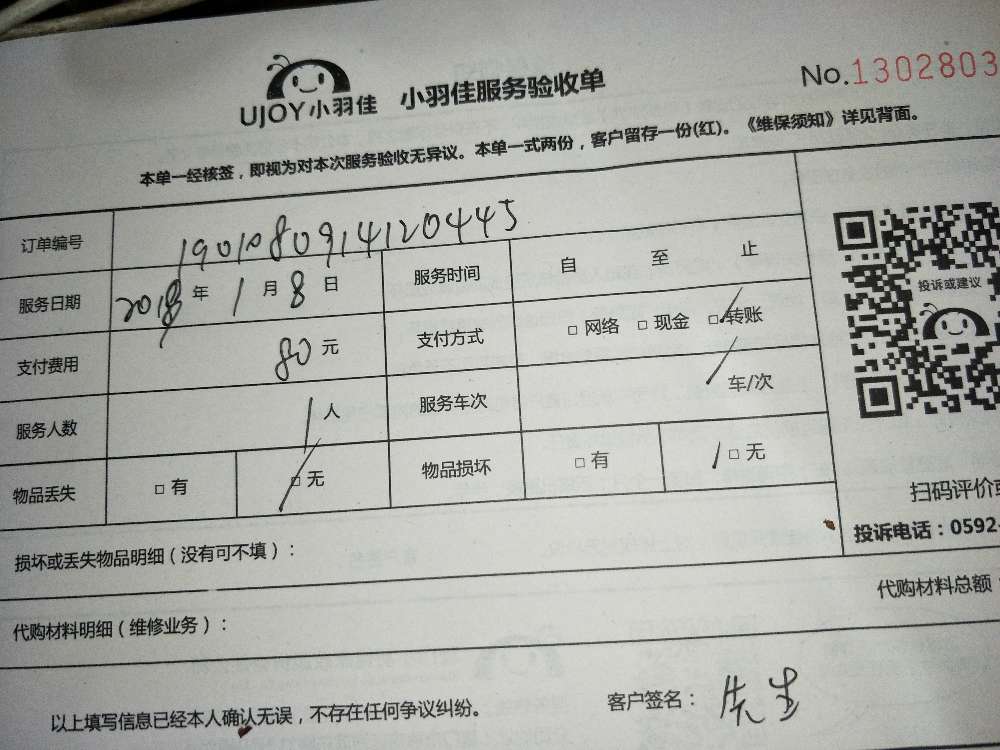 UJOY小羽佳 小羽佳服务验收单 No.1302803
本单一经核签，即视为对本次服务验收无异议。本单一式两份，客户留存一份(红)。《维保须知》详见背面。
订单编号 19010809141120445
服务日期 2018年1月8日 服务时间 自 至 止
支付费用 80元 支付方式 □网络 □现金 □转账
投诉或建议
服务人数 1人 服务车次 车/次
物品丢失 □有 □无 物品损坏 □有 □无
扫码评价
投诉电话：0592-
损坏或丢失物品明细（没有可不填）：
代购材料明细（维修业务）： 代购材料总额：
以上填写信息已经本人确认无误，不存在任何争议纠纷。 客户签名： 先生